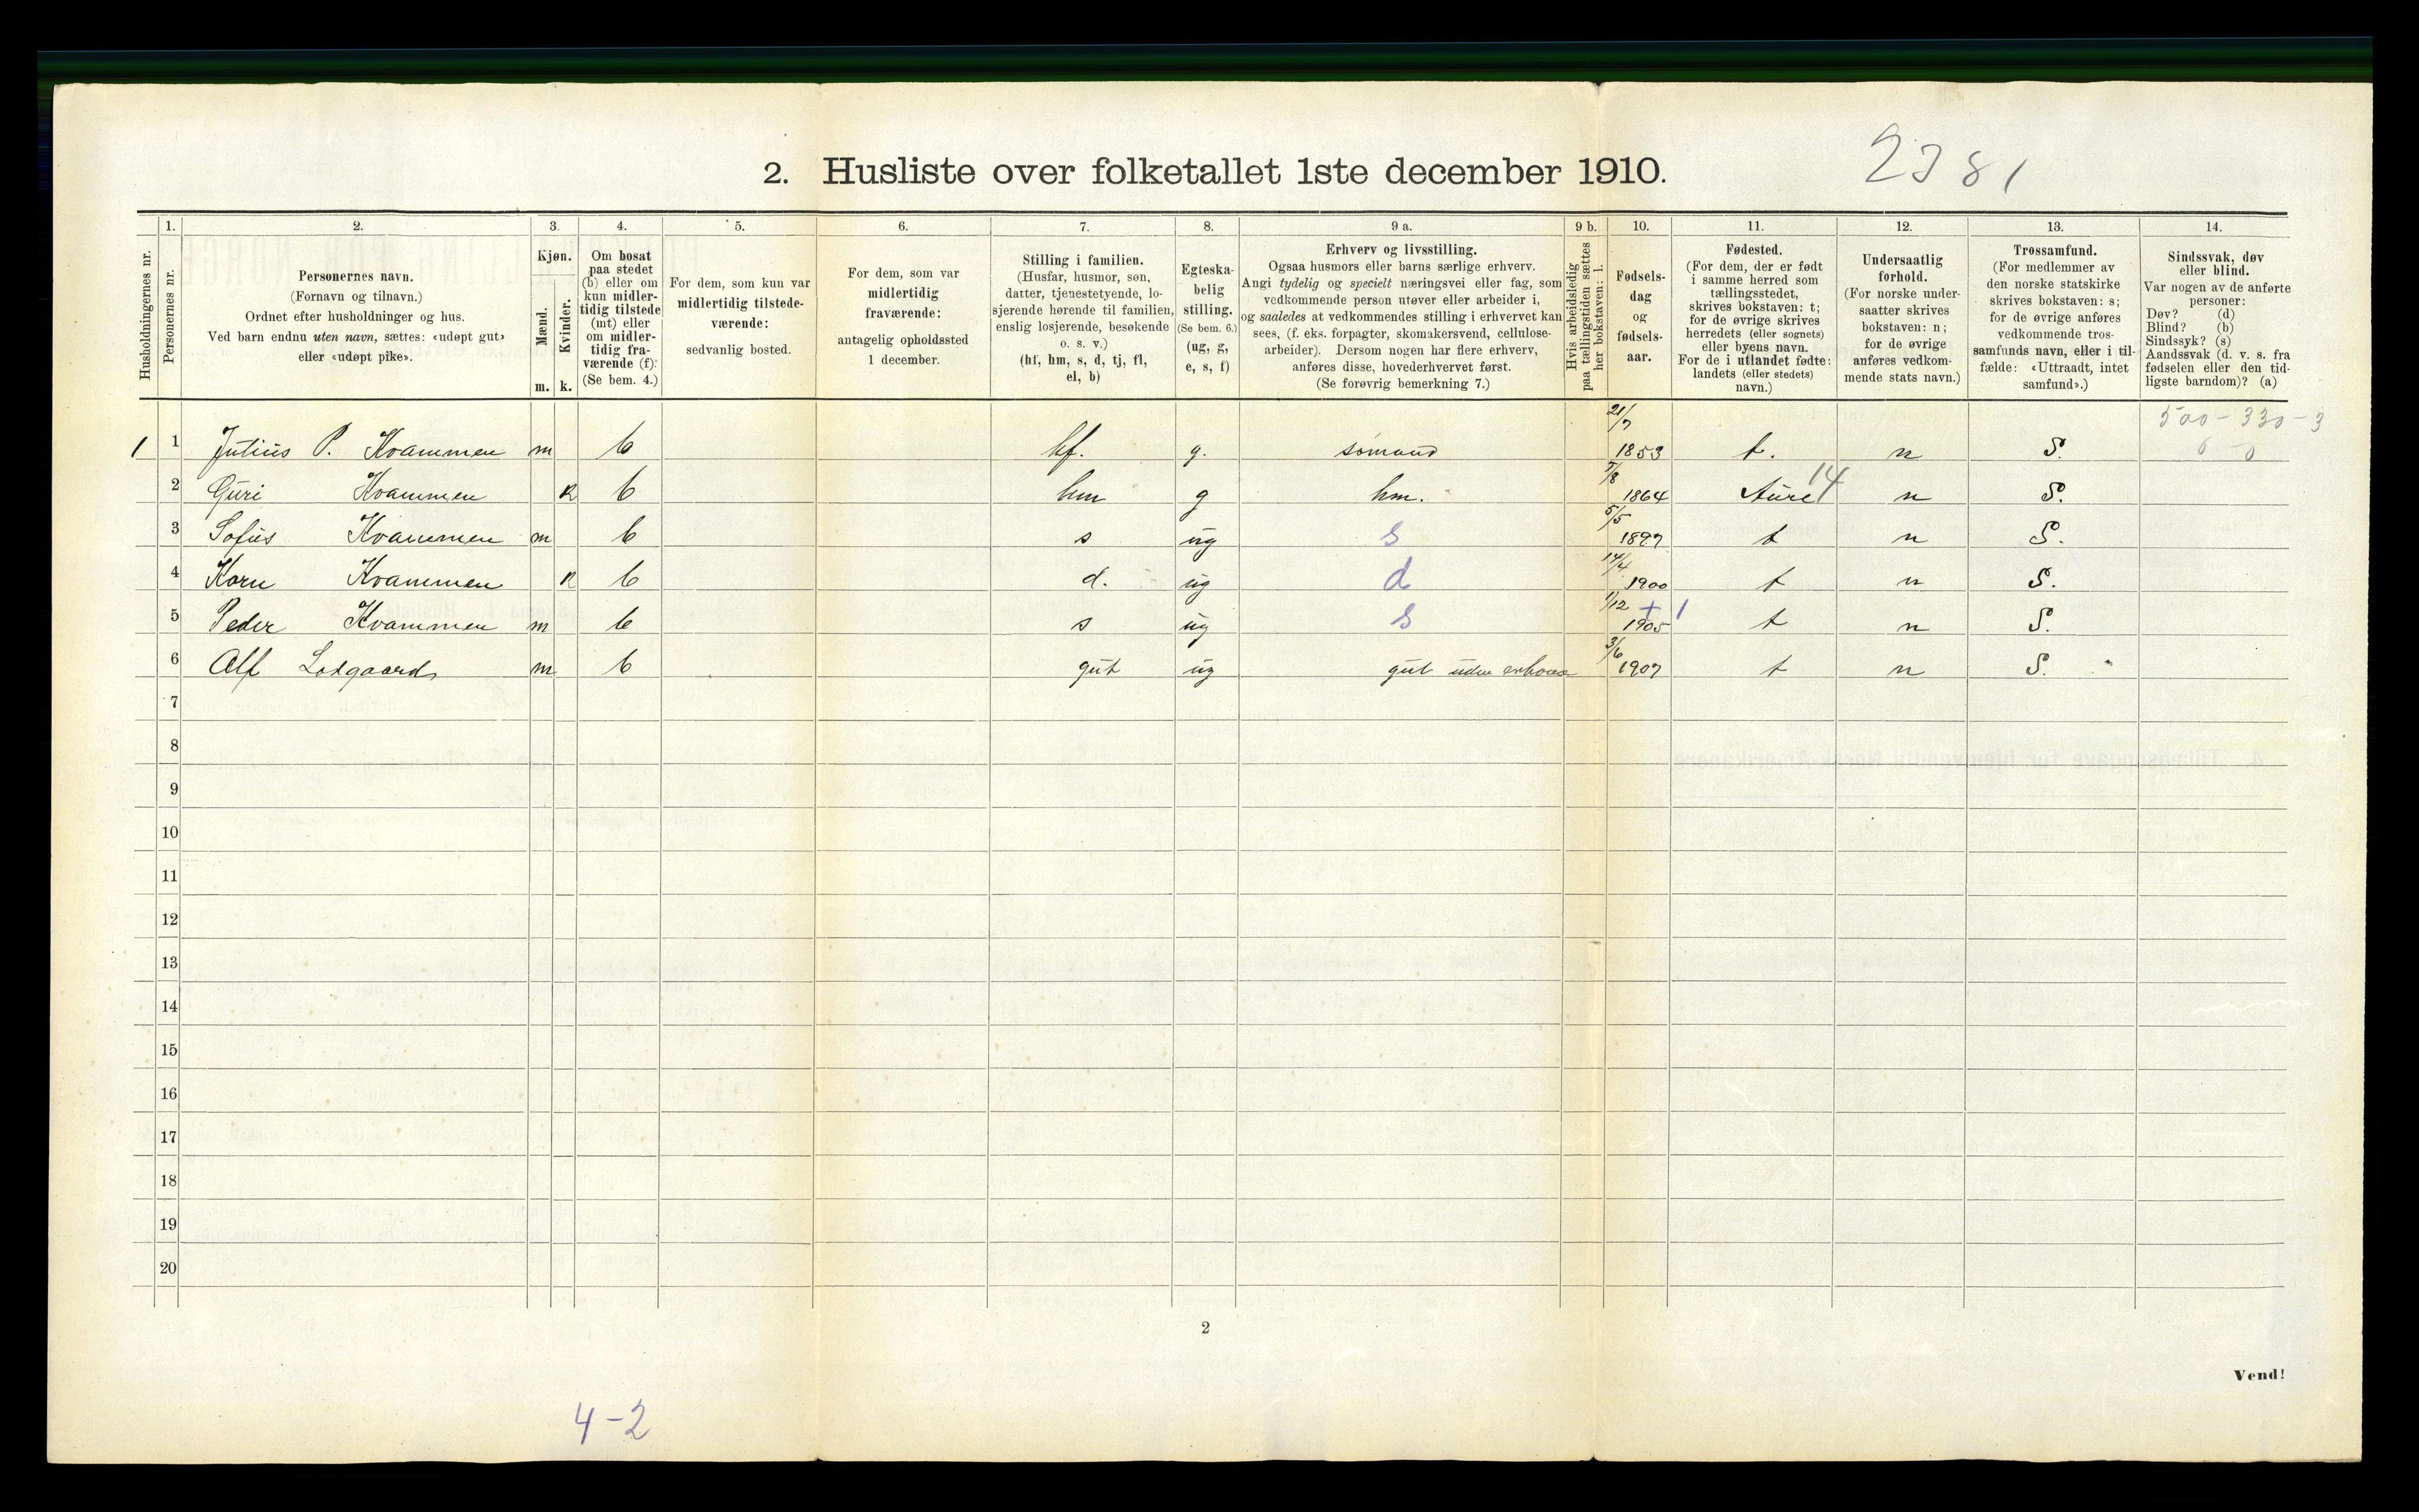 2. Husliste over folketallet 1ste december 1910.
2381
Husholdningernes nr.
1. Personernes nr.
2. Personernes navn. (Fornavn og tilnavn.) Ordnet efter husholdninger og hus. Ved barn endnu uten navn, sættes: «udøpt gut» eller «udøpt pike».
3. Kjøn. Mænd. m. Kvinder. k.
4. Om bosat paa stedet (b) eller om kun midlertidig tilstede (mt) eller om midlertidig fraværende (f): (Se bem. 4.)
5. For dem, som kun var midlertidig tilstedeværende: sedvanlig bosted.
6. For dem, som var midlertidig fraværende: antagelig opholdssted 1 december.
7. Stilling i familien. (Husfar, husmor, søn, datter, tjenestetyende, losjerende hørende til familien, enslig losjerende, besøkende o. s. v.) (hf, hm, s, d, tj, fl, el, b)
8. Egteskabelig stilling. (Se bem. 6.) (ug, g, e, s, f)
9 a. Erhverv og livsstilling. Ogsaa husmors eller barns særlige erhverv. Angi tydelig og specielt næringsvei eller fag, som vedkommende person utøver eller arbeider i, og saaledes at vedkommendes stilling i erhvervet kan sees, (f. eks. forpagter, skomakersvend, cellulosearbeider). Dersom nogen har flere erhverv, anføres disse, hovederhvervet først. (Se forøvrig bemerkning 7.)
9 b. Hvis arbeidsledig paa tællingstiden sættes her bokstaven: l.
10. Fødselsdag og fødselsaar.
11. Fødested. (For dem, der er født i samme herred som tællingsstedet, skrives bokstaven: t; for de øvrige skrives herredets (eller sognets) eller byens navn. For de i utlandet fødte: landets (eller stedets) navn.)
12. Undersaatlig forhold. (For norske undersaatter skrives bokstaven: n; for de øvrige anføres vedkommende stats navn.)
13. Trossamfund. (For medlemmer av den norske statskirke skrives bokstaven: s; for de øvrige anføres vedkommende trossamfunds navn, eller i tilfælde: «Uttraadt, intet samfund».)
14. Sindssvak, døv eller blind. Var nogen av de anførte personer: Døv? (d) Blind? (b) Sindssyk? (s) Aandssvak (d. v. s. fra fødselen eller den tidligste barndom)? (a)
500-330-3
0 0
1 1 Julius P. Kvammen m b hf. g. sømand 21/7 1853 t. n S.
2 Guri Kvammen k b hm g hm. 7/8 1864 Aure 14 n S.
3 Sofus Kvammen m b s ug s 5/5 1897 t n S.
4 Karn Kvammen k b d. ug d 14/4 1900 t n S.
5 Peder Kvammen m b s ug s 1/12 + 1 1905 t n S.
6 Alf Lodgaard m b gut ug gut uden 3/6 1907 t n S.
7
8
9
10
11
12
13
14
15
16
17
18
19
20
2
Vend!
4-2